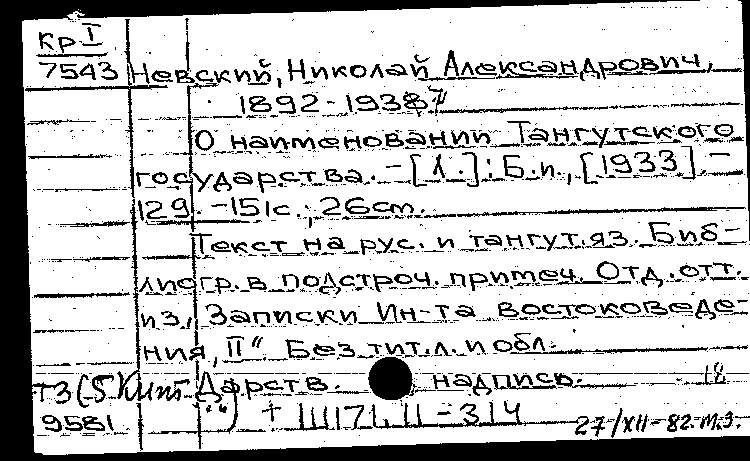 Кр I
7543 Невский, Николай Александрович,
1892-1938
О наименовании Тангутского
государства. - [Л.]: Б.и., [1933]. -
129. - 151с.; 26cm.
Текст на рус. и тангут. яз. Биб-
лиогр. в подстроч. примеч. Отд. отт.
из, Записки Ин-та востоковеде-
ния, II" Без тит. л. и обл.
Дарств. надпись. 18
9581 + 314
27/XII-82. м.з.